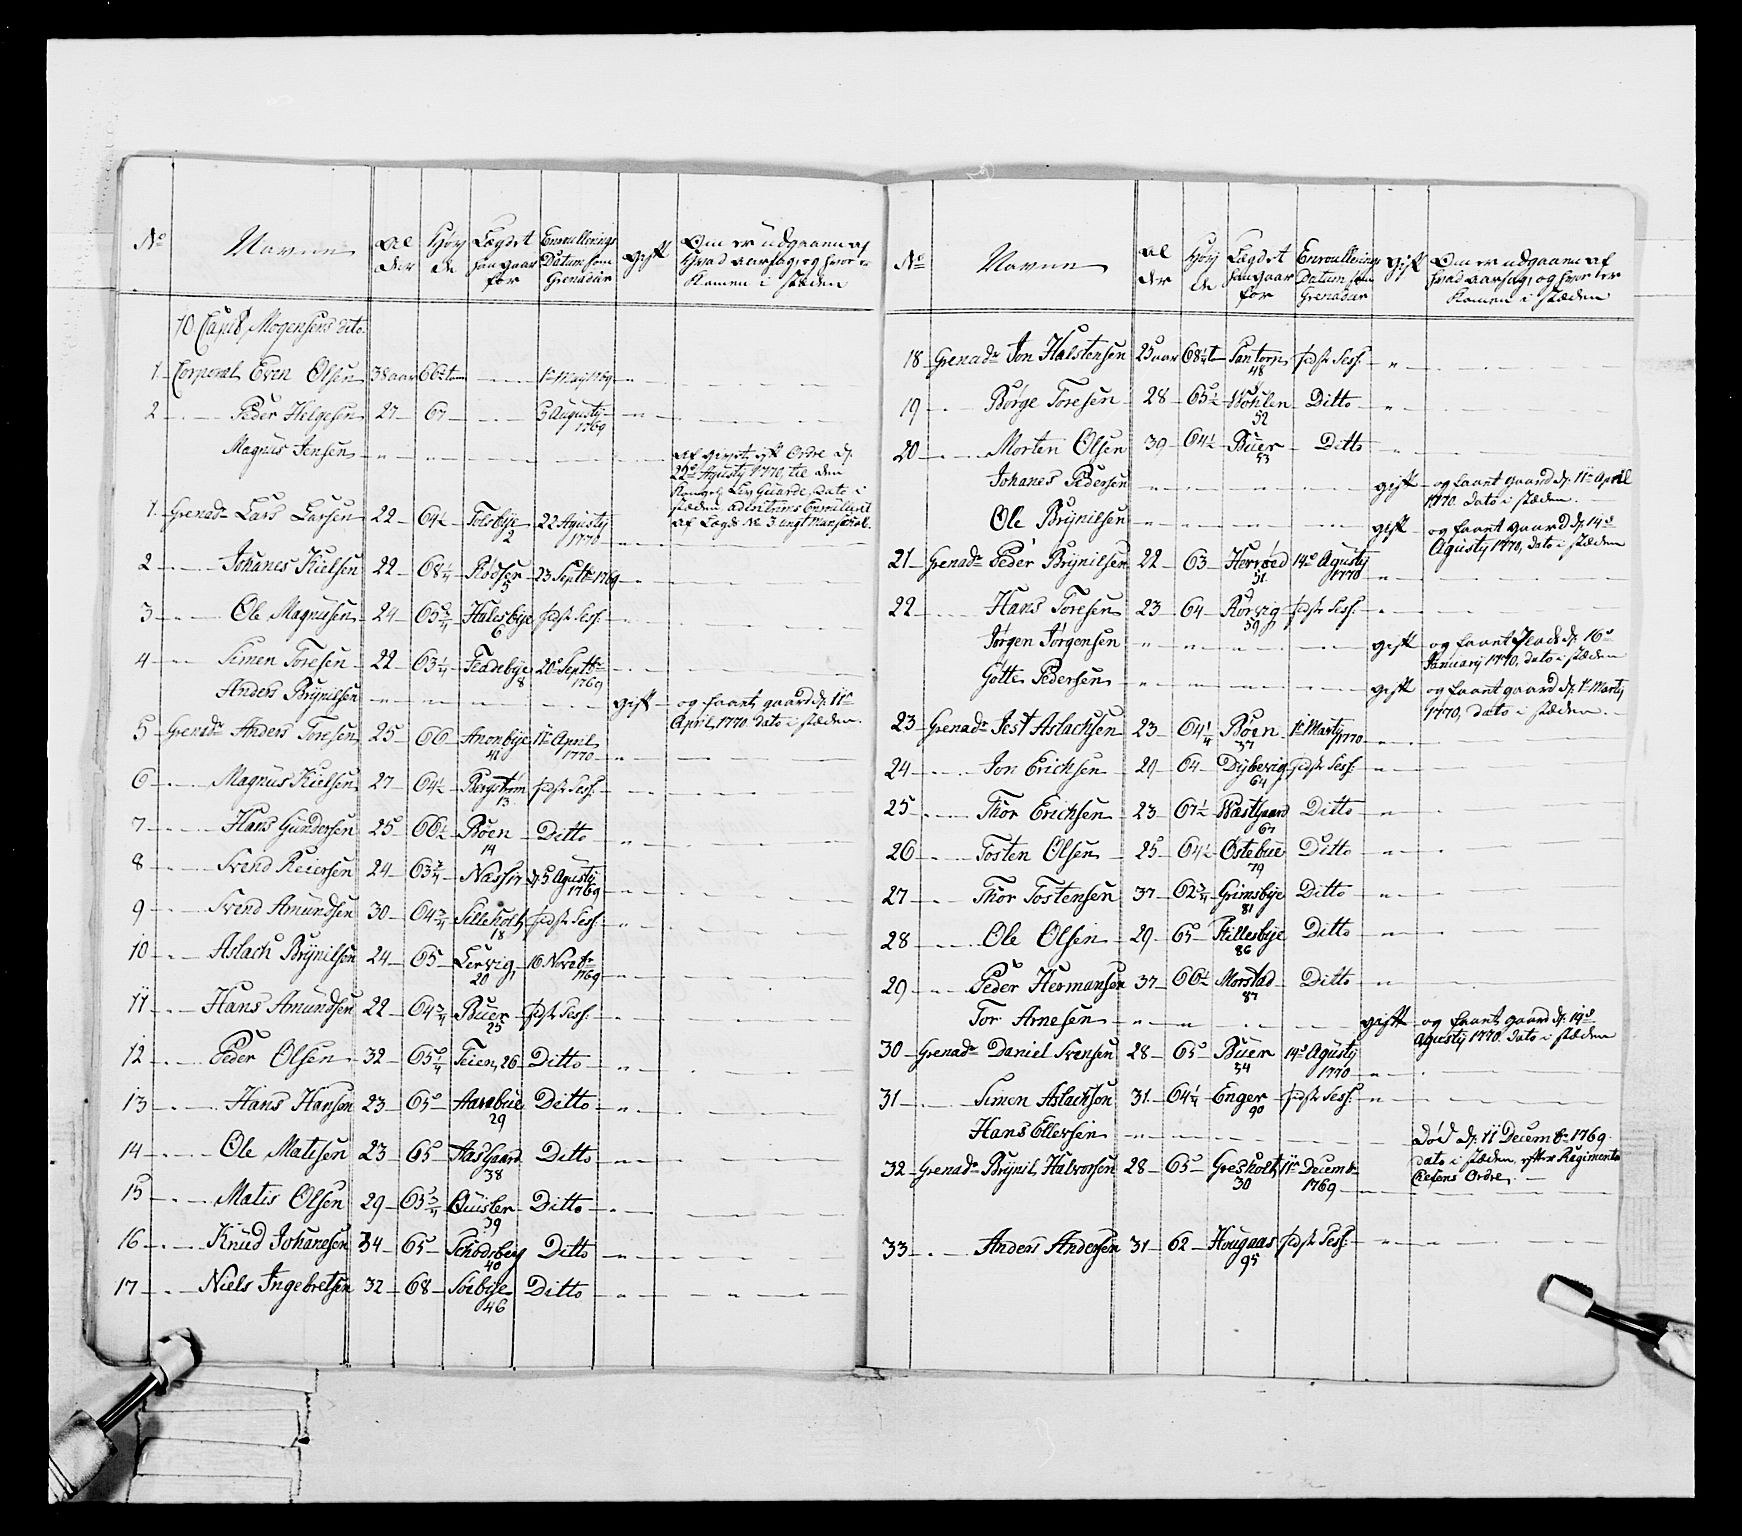 No Navne Al der Høy de Lægdet han gaar for Enroullerings Datum som Grenadær gift Om er udgaaen af hvad aarsag, og hvor er Kommen i stæden
10 Capt Mogensens dito
1 Corporal Even Olsen 38 aar 66 1/2 tom 1te Maij 1769
2 Peder Helgesen 27 67 6 Augusty 1769
Magnus Jensen af givet eft Ordre dj.
22de Agusty 1770, til den
Kongel: Liv Guarde, dato i
stæden
1 Grenadr Lars Larsen 22 64 1/2 Tolsbye 2 22 Agusty 1770 af Lægd N 3
2 Johanes Kielsen 22 68 1/4 Rødser 5 23 Septbr 1769
3 Ole Magnusen 24 65 3/4 Halesbye 6 sidste Sess:
4 Simen Toresen 22 63 1/4 Feadebye 8 20de Septbr 1769
Anders Brynilsen gift og faaet gaard dj. 11te
April 1770 dato i stæden
5 Grenadr Anders Toresen 25 66 Anonbye 41 11te April 1770
6 Magnus Kielsen 27 64 1/2 Bergstrøm 13 sidste Sess:
7 Hans Gundersen 25 66 1/2 Røen 14 Ditto
8 Svend Reiersen 24 63 3/4 Næss 5 Agusty 1769
9 Svend Amundsen 30 64 3/4 Silleholt 18 sidste Sess:
10 Aslach Brynilsen 24 65 Lervig 20 16 Novebr 1769
11 Hans Amundsen 22 64 3/4 Buer 25 sidste Sess:
12 Peder Olsen 32 65 1/4 Teien 26 Ditto
13 Hans Hansen 23 65 Aarebue 29 Ditto
14 Ole Matisen 23 65 Aasgaard 38 Ditto
15 Matis Olsen 29 65 3/4 Quisler 39 Ditto
16 Knud Johanesen 34 65 Schodsberg 40 Ditto
17 Niels Ingebretsen 32 68 Søebye 46 Ditto
No Navne Al der Høy de Lægdet han gaar for Enroullerings Datum som Grenadær gift Om er udgaaen af hvad aarsag, og hvor er Kommen i stæden
18 Grenadr Jon Halstensen 25 aar 68 1/4 t Pantorp 48 sidste Sess:
19 Børge Toresen 28 65 1/2 Wohlen 52 Ditto
20 Morten Olsen 39 64 1/2 Buer 53 Ditto
Johanes Pedersen gift og faaet gaard dj. 11te April
1770. dato i stæden
Ole Brynilsen gift og faaet gaard dj. 14de
Agusty 1770, dato i stæden
21 Grenadr Peder Brynilsen 22 63 Herrøed 51 14de Agusty 1770
22 Hans Toresen 23 64 Rørvig 59 sidste Sess:
Jørgen Jørgensen gift og faaet Plads dj. 16de
January 1770, dato i stæden
Gotte Pedersen gift og faaet gaard dj. 1te Marty
1770, dato i stæden
23 Grenadr Jest Aslachsen 23 64 1/4 Røen 37 1te Marty 1770
24 Jon Erichsen 29 64 Dybevig 64 sidste Sess:
25 Thor Erichsen 23 67 1/2 Wæstgaard 67 Ditto
26 Tosten Olsen 25 64 1/2 Østebue 79 Ditto
27 Thor Tostensen 37 62 3/4 Grimsbye 81 Ditto
28 Ole Olsen 29 65 Killesbye 86 Ditto
29 Peder Hermansen 37 66 1/2 Morstad 87 Ditto
Tor Arnesen gift og faaet gaard dj. 19de
Agusty 1770. dato i stæden
30 Grenadr Daniel Svensen 28 65 Buer 54 14de Agusty 1770
31 Simon Aslachsen 31 64 1/4 Enger 90 sidste Sess:
Hans Ellefsen Død dj. 11 Decembr 1769
dato i stæden, efter Regiments
Chefens Ordre
32 Grenadr Brynil Halvorsen 28 65 Gresholt 30 11te Decembr 1769
33 Anders Andersen 31 62 Hougaas 95 sidste Sess: